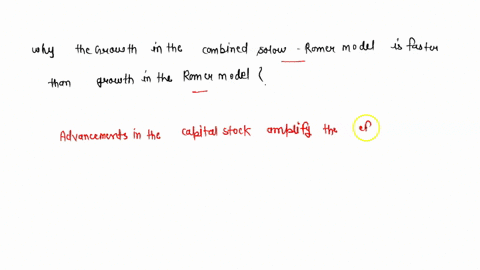 why the Growth in the combined solow - Romer model is faster
than growth in the Romer model {.
Advancements in the capital stock amplify the ef